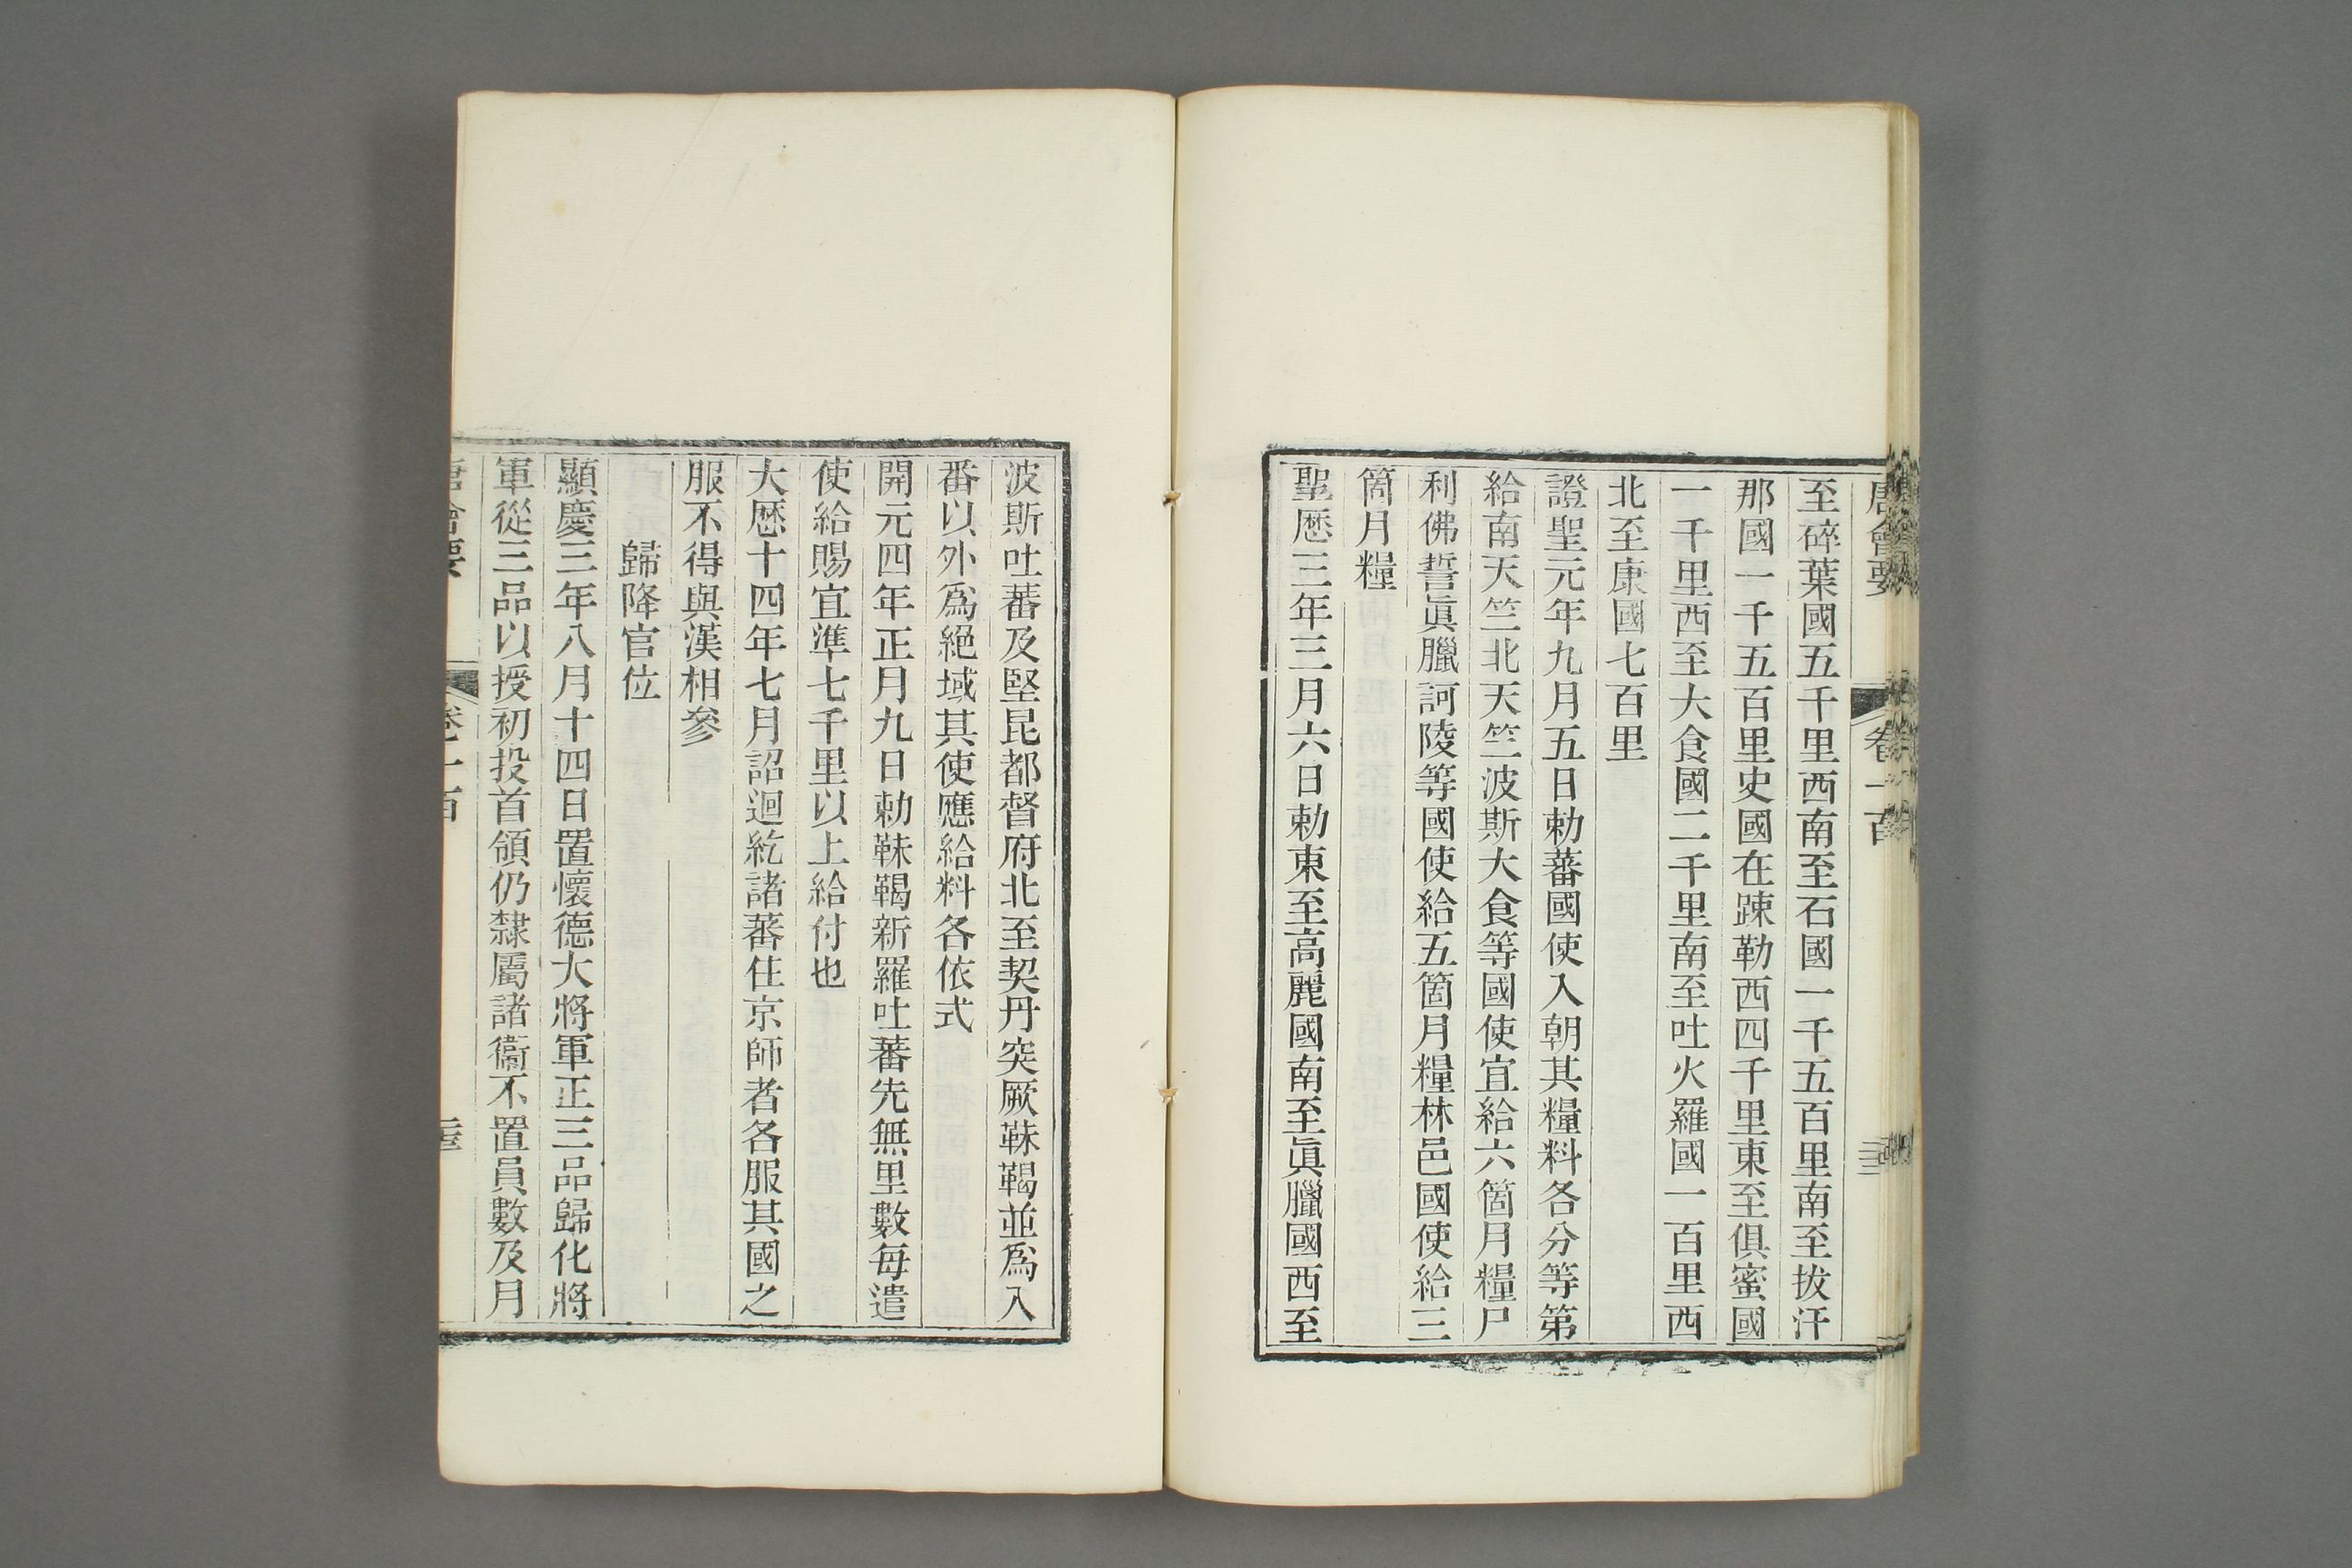 唐會要 卷一百
至碎葉國五千里西南至石國一千五百里南至拔汗
那國一千五百里史國在踈勒西四千里東至俱蜜國
一千里西至大食國二千里南至吐火羅國一百里西
北至康國七百里
證聖元年九月五日勅蕃國使入朝其糧料各分等第
給南天竺北天竺波斯大食等國使宜給六箇月糧尸
利佛誓眞臘訶陵等國使給五箇月糧林邑國使給三
箇月糧
聖厯三年三月六日勅東至高麗國南至眞臘國西至
波斯吐蕃及堅昆都督府北至契丹突厥靺鞨並爲入
番以外爲絕域其使應給料各依式
開元四年正月九日勅靺鞨新羅吐蕃先無里數每遣
使給賜宜準七千里以上給付也
大厯十四年七月詔迴紇諸蕃住京師者各服其國之
服不得與漢相參
歸降官位
顯慶三年八月十四日置懷德大將軍正三品歸化將
軍從三品以授初投首領仍隸屬諸衞不置員數及月
唐會要 卷一百